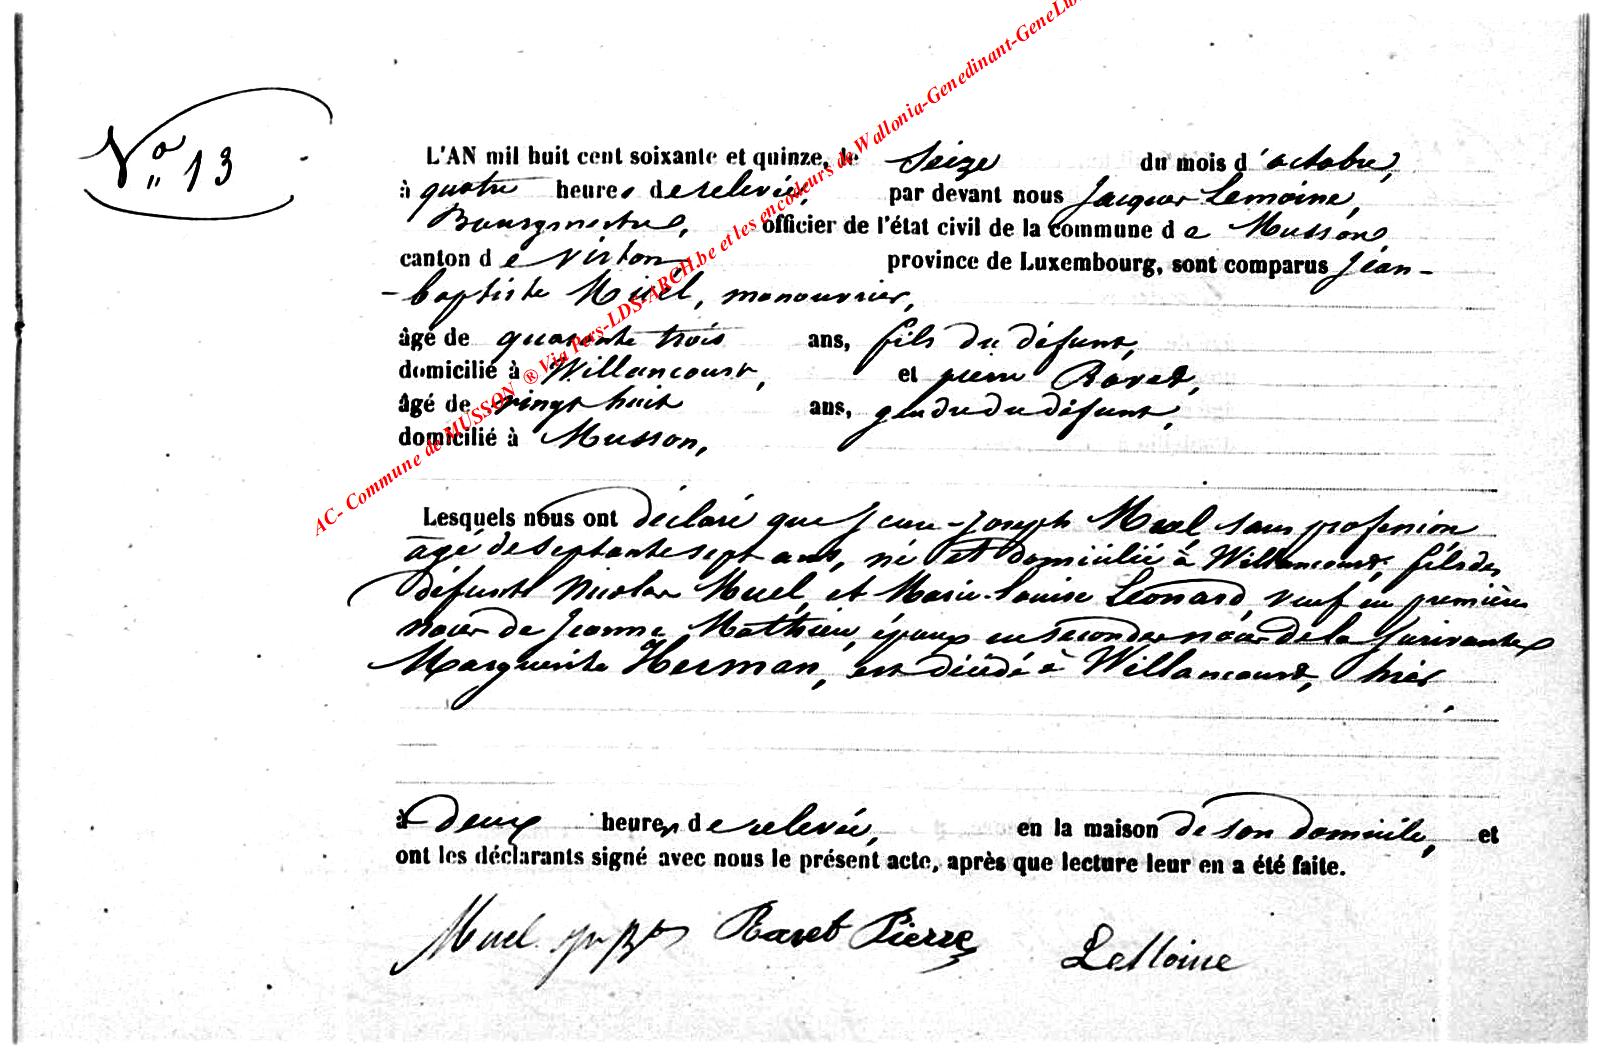 N° 13
L'AN mil huit cent soixante et quinze, le Seize du mois d'octobre,
à quatre heures de relevée, par devant nous Jacques Lemoine,
Bourgmestre, officier de l'état civil de la commune de Musson,
canton de Virton, province de Luxembourg, sont comparus Jean-
-baptiste Muël, manouvrier,
âgé de quarante trois ans, fils du défunt,
domicilié à Willancourt, et pierre Ravet,
âgé de vingt huit ans, gendre du défunt,
domicilié à Musson,
Lesquels nous ont déclaré que Jean-Joseph Muël sans profession
âgé de septante sept ans, né et domicilié à Willancourt, fils des
défunts Nicolas Muel, et Marie-louise Léonard, veuf en premières
noces de Jeanne Mathieu, époux en secondes noces de la survivante
Marguerite Herman, est décédé à Willancourt, hier,
à deux heures de relevée, en la maison de son domicile, et
ont les déclarants signé avec nous le présent acte, après que lecture leur en a été faite.
Muel Ravet Pierre LeMoine
AC- Commune de MUSSON ® Via Pers-LDS-ARCH.be et les encodeurs de Wallonia-Genedinant-GeneLux